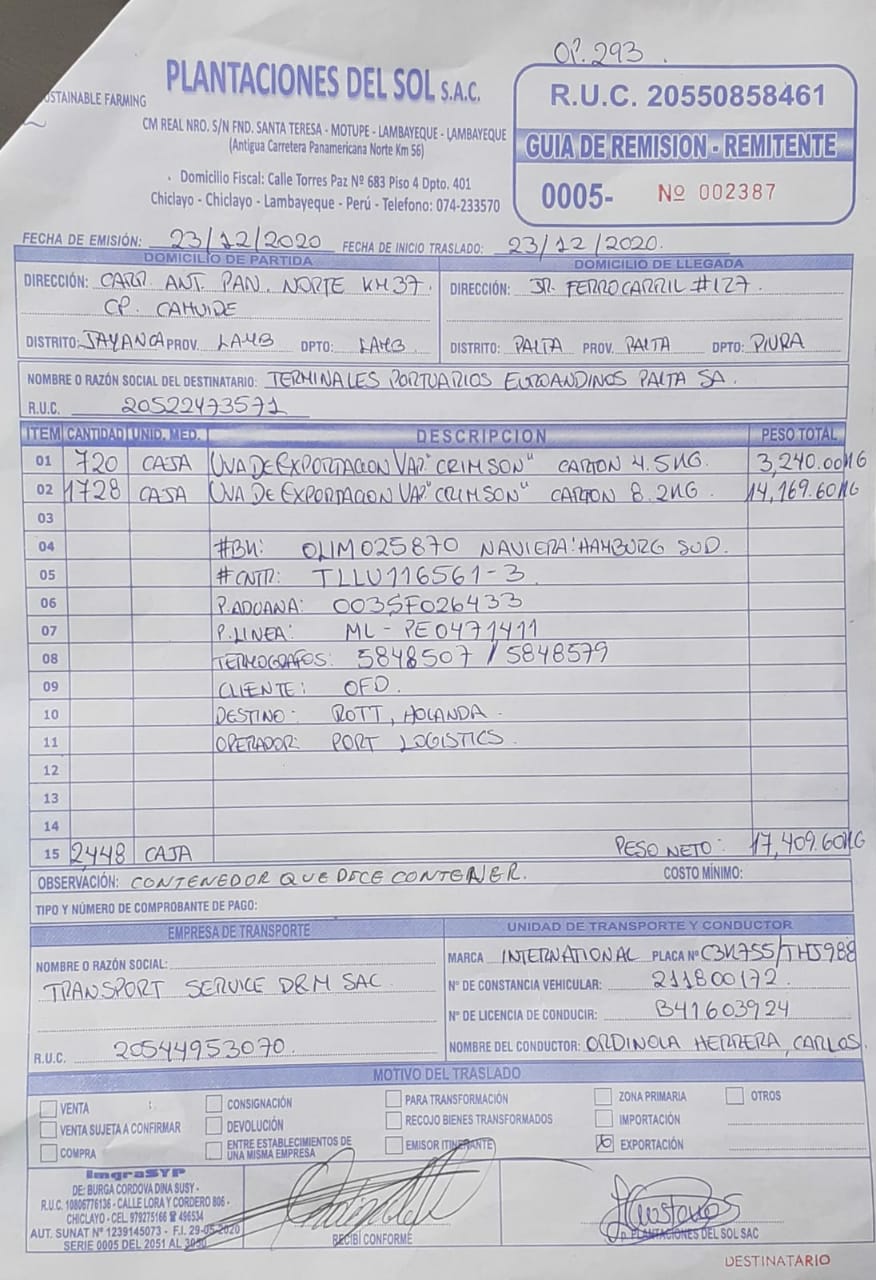 OP. 293.
SUSTAINABLE FARMING
PLANTACIONES DEL SOL S.A.C.
CM REAL NRO. S/N FND. SANTA TERESA - MOTUPE - LAMBAYEQUE - LAMBAYEQUE
(Antigua Carretera Panamericana Norte Km 56)
Domicilio Fiscal: Calle Torres Paz Nº 683 Piso 4 Dpto. 401
Chiclayo - Chiclayo - Lambayeque - Perú - Telefono: 074-233570
R.U.C. 20550858461
GUIA DE REMISION - REMITENTE
0005- Nº 002387
FECHA DE EMISIÓN: 23/12/2020 FECHA DE INICIO TRASLADO: 23/12/2020.
DOMICILIO DE PARTIDA
DIRECCIÓN: CARR. ANT. PAN. NORTE KM 37.
CP. CAHUIDE
DISTRITO: JAYANCA PROV. LAMB DPTO: LAMB.
DOMICILIO DE LLEGADA
DIRECCIÓN: JR. FERROCARRIL #127.
DISTRITO: PAITA PROV. PAITA DPTO: PIURA
NOMBRE O RAZÓN SOCIAL DEL DESTINATARIO: TERMINALES PORTUARIOS EUROANDINOS PAITA SA.
R.U.C. 20522473571
ITEM CANTIDAD UNID. MED. DESCRIPCION PESO TOTAL
01 720 CAJA UVA DE EXPORTACION VAR."CRIMSON" CARTON 4.5KG. 3,240.00KG
02 1728 CAJA UVA DE EXPORTACION VAR."CRIMSON" CARTON 8.2KG. 14,169.60KG
03
04 #BK: OLIM025870 NAVIERA: HAMBURG SUD.
05 #CNTR: TLLU116561-3
06 P.ADUANA: 003SF026433
07 P.LINEA: ML-PE0471411
08 TERMOGRAFOS: 5848507 / 5848579
09 CLIENTE: OFD.
10 DESTINO: ROTT, HOLANDA.
11 OPERADOR: PORT LOGISTICS.
12
13
14
15 2448 CAJA PESO NETO: 17,409.60KG
OBSERVACIÓN: CONTENEDOR QUE DICE CONTENER. COSTO MÍNIMO:
TIPO Y NÚMERO DE COMPROBANTE DE PAGO:
EMPRESA DE TRANSPORTE
NOMBRE O RAZÓN SOCIAL:
TRANSPORT SERVICE D&M SAC
R.U.C. 20544953070.
UNIDAD DE TRANSPORTE Y CONDUCTOR
MARCA INTERNATIONAL PLACA Nº C3K755/THJ988
N° DE CONSTANCIA VEHICULAR: 211800172.
N° DE LICENCIA DE CONDUCIR: B41603924
NOMBRE DEL CONDUCTOR: ORDINOLA HERRERA, CARLOS.
MOTIVO DEL TRASLADO
VENTA CONSIGNACIÓN PARA TRANSFORMACIÓN ZONA PRIMARIA OTROS
VENTA SUJETA A CONFIRMAR DEVOLUCIÓN RECOJO BIENES TRANSFORMADOS IMPORTACIÓN
COMPRA ENTRE ESTABLECIMIENTOS DE UNA MISMA EMPRESA EMISOR ITINERANTE X EXPORTACIÓN
ImgraSYP
DE: BURGA CORDOVA DINA SUSY -
R.U.C. 10806776136 - CALLE LORA Y CORDERO 806 -
CHICLAYO - CEL. 979275166 ☎ 496534
AUT. SUNAT Nº 1239145073 - F.I. 29-05-2020
SERIE 0005 DEL 2051 AL 3050
RECIBÍ CONFORME
p. PLANTACIONES DEL SOL SAC
DESTINATARIO